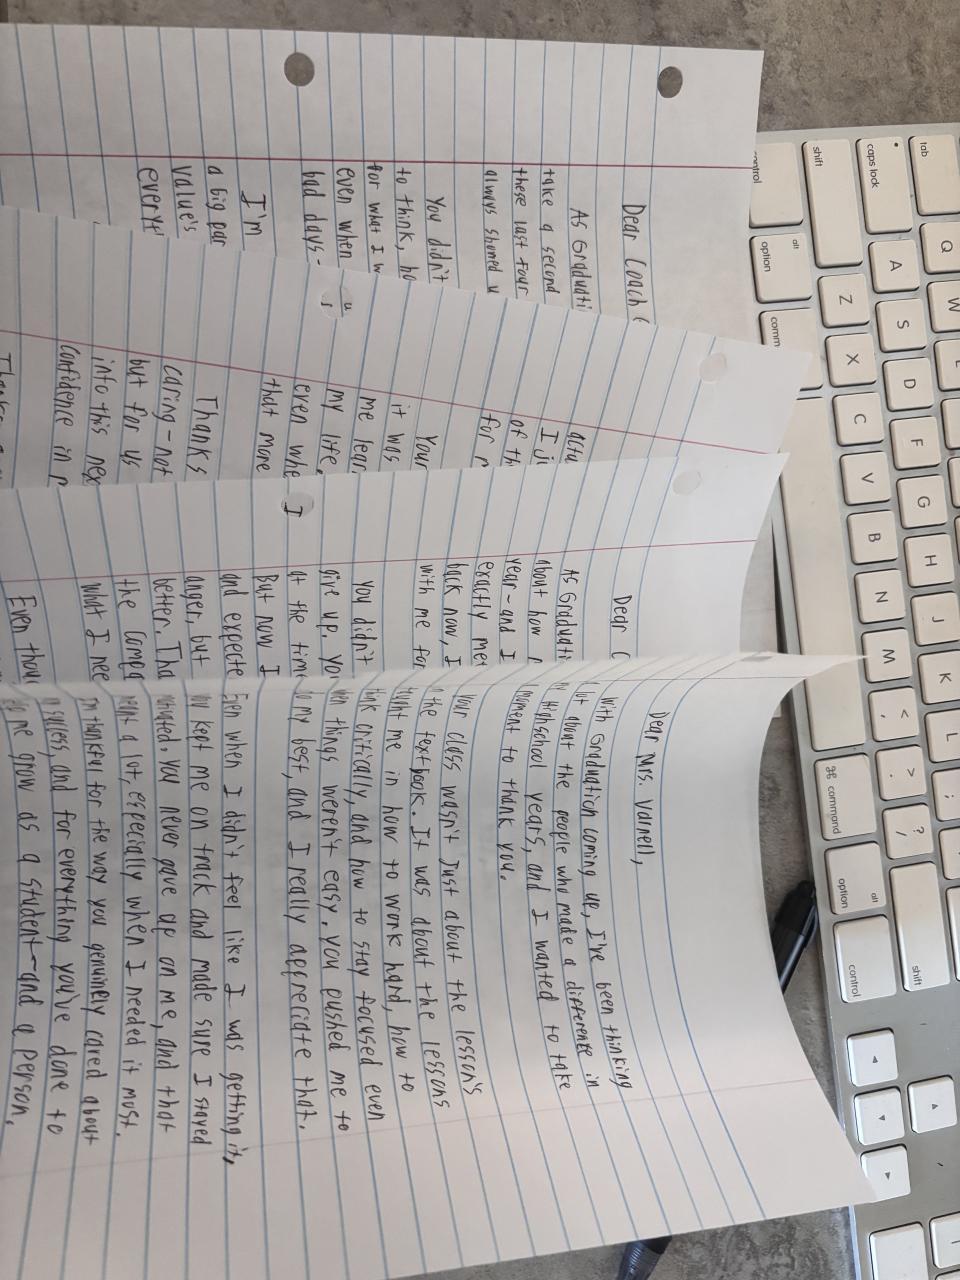 Dear Coach
As Graduati
take a second
these last four
always showed u
You didn't
to think, ho
for what I w
even when
bad days-
I'm
a big par
value's
everyt
actu
I ju
of th
for m
Your
it was
me lear
my life.
even whe
that more
Thanks
caring-not
but for us
into this nex
confidence in
Dear
As Graduati
about how
year-and I
exactly met
back now, I
with me for
You didn't
give up. You
at the time
But now I
and expecte
anger, but
better. Tha
the comp
what I nee
Even thou
Dear Mrs. Varnell,
with Graduation coming up, I've been thinking
lot about the people who made a difference in
my Highschool years, and I wanted to take
moment to thank you.
Your class wasn't Just about the lesson's
in the textbook. It was about the lessons
taught me in how to work hard, how to
think critically, and how to stay focused even
when things weren't easy. you pushed me to
do my best, and I really appreciate that.
Even when I didn't feel like I was getting it,
you kept me on track and made sure I stayed
motivated. you never gave up on me, and that
meant a lot, especially when I needed it most.
I'm thankful for the way you genuinely cared about
success, and for everything you've done to
me grow as a student-and a person.
tab
Q
W
caps lock
A
S
D
F
G
H
J
K
L
;
shift
Z
X
C
V
B
N
M
<
,
>
.
?
/
shift
control
alt
option
comm
⌘ command
alt
option
control